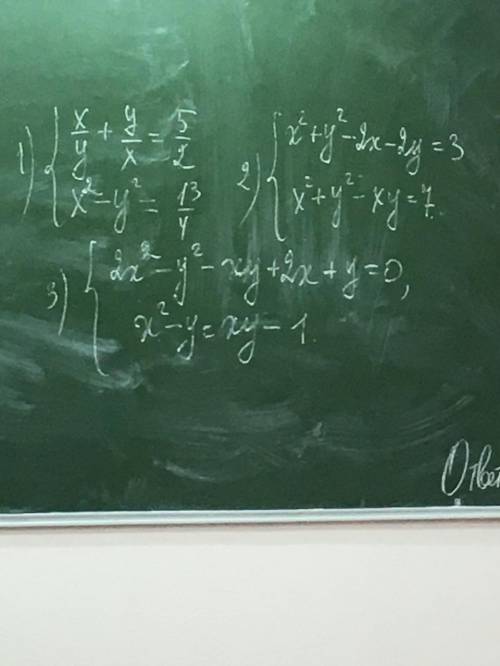 1) { x/y + y/x = 5/2
x² - y² = 13/4
2) { x² + y² - 2x - 2y = 3
x² + y² - xy = 7.
3) { 2x² - y² - xy + 2x + y = 0,
x² - y = xy - 1.